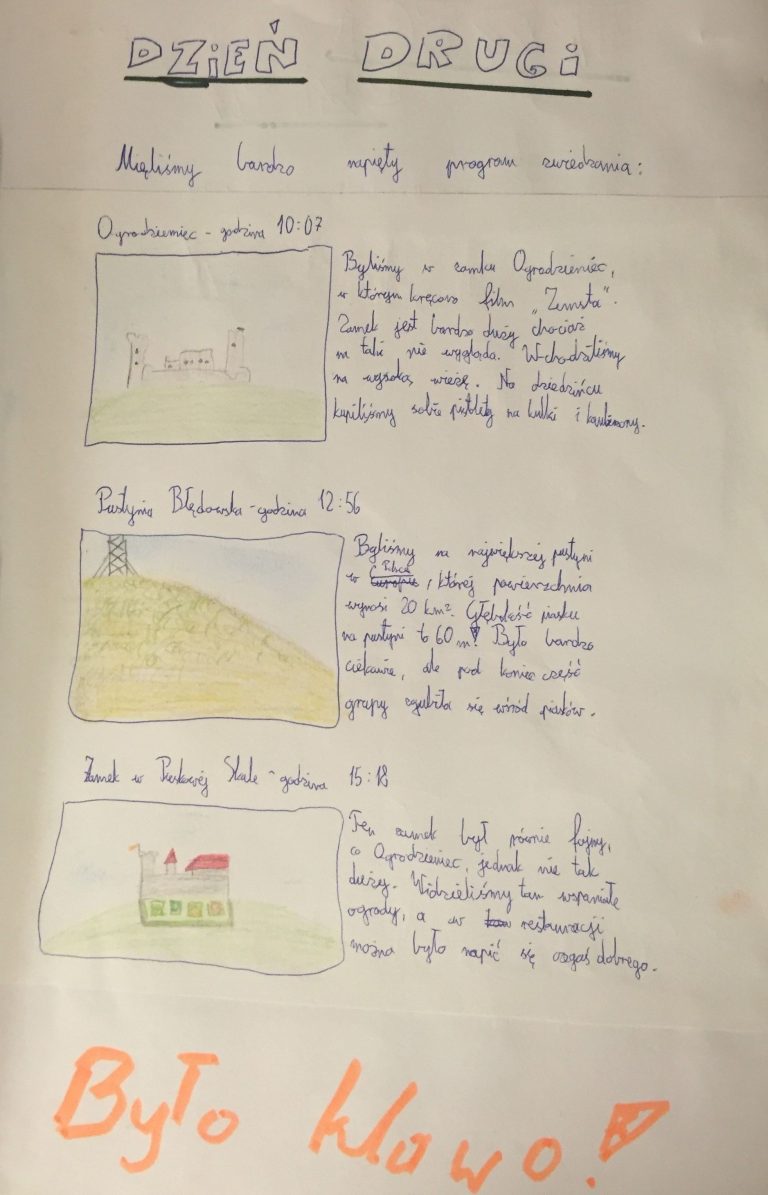 DZIEŃ DRUGI
Mieliśmy bardzo napięty program zwiedzania:
Ogrodzieniec - godzina 10:07
Byliśmy w zamku Ogrodzieniec,
w którym kręcono film „Zemsta".
Zamek jest bardzo duży chociaż
na taki nie wygląda. Wchodziliśmy
na wysoką wieżę. Na dziedzińcu
kupiliśmy sobie pistolety na kulki i
Pustynia Błędowska - godzina 12:56
Byliśmy na największej pustyni
w Polsce, której powierzchnia
wynosi 20 km². Głębokość piasku
na pustyni to 60 m! Było bardzo
ciekawie, ale pod koniec część
grupy zgubiła się wśród piasków.
Zamek w Pieskowej Skale - godzina 15:18
Ten zamek był równie fajny,
co Ogrodzieniec, jednak nie tak
duży. Widzieliśmy tam wspaniałe
ogrody, a w restauracji
można było napić się czegoś dobrego.
Było klawo!